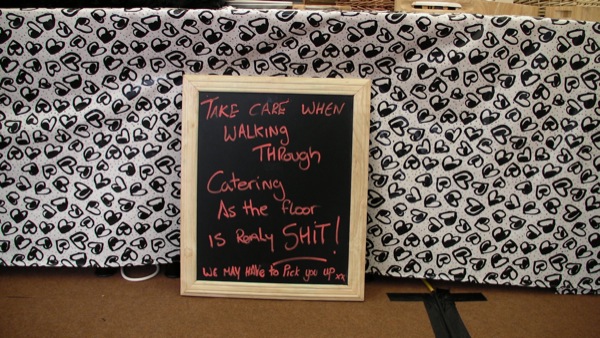 TAKE CARE WHEN
WALKING
THROUGH
Catering
As the floor
is Realy SHIT!
WE MAY HAVE to Pick you up xx